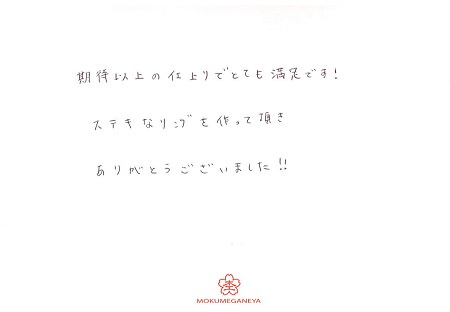 期待以上の仕上りでとても満足です!
ステキなリングを作って頂き
ありがとうございました!!
MOKUMEGANEYA